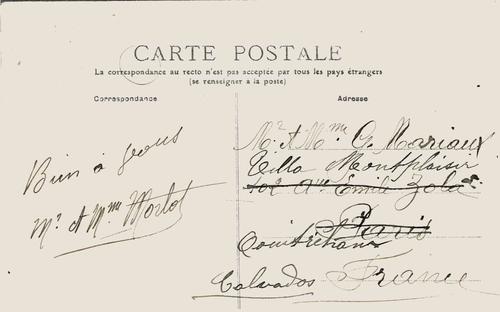 CARTE POSTALE
La correspondance au recto n'est pas acceptée par tous les pays étrangers
(se renseigner à la poste)
Correspondance
Adresse
Bien à vous
Mr et Mme Morlot
Mr et Mme G. Mariaux
Villa Montplaisir
Av. Emile Zola
Paris
Calvados France